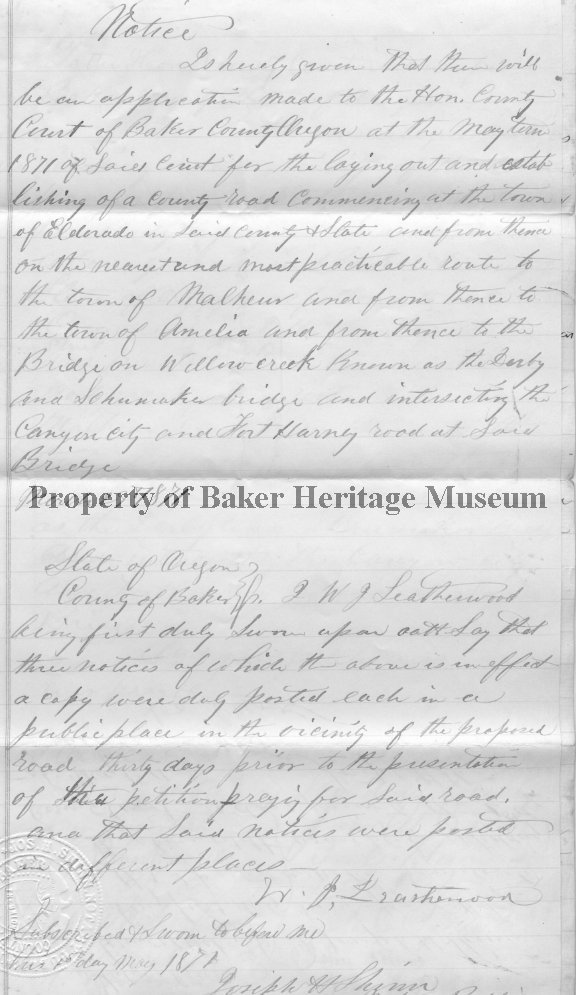 Notice
Is hereby given that there will
be an application made to the Hon. County
Court of Baker County Oregon at the May term
1871 of Said Court for the laying out and estab
lishing of a County road commencing at the town
of Eldorado in Said County & State and from thence
on the nearest and most practicable route to
the town of Malheur and from thence to
the town of Amelia and from thence to the
Bridge on Willow creek Known as the Derby
and Schumaker bridge and intersecting the
Canyon city and Fort Harney road at Said
Bridge
Property of Baker Heritage Museum
State of Oregon
County of Baker } ss. I W J Leatherwood
being first duly Sworn upon oath Say that
three notices of which the above is in effect
a copy were duly posted each in a
public place in the vicinity of the proposed
road thirty days prior to the presentation
of petition praying for Said road.
and that Said notices were posted
in different places
W. J. Leatherwood
Subscribed & Sworn to before me
this day May 1871
Joseph H Shinn